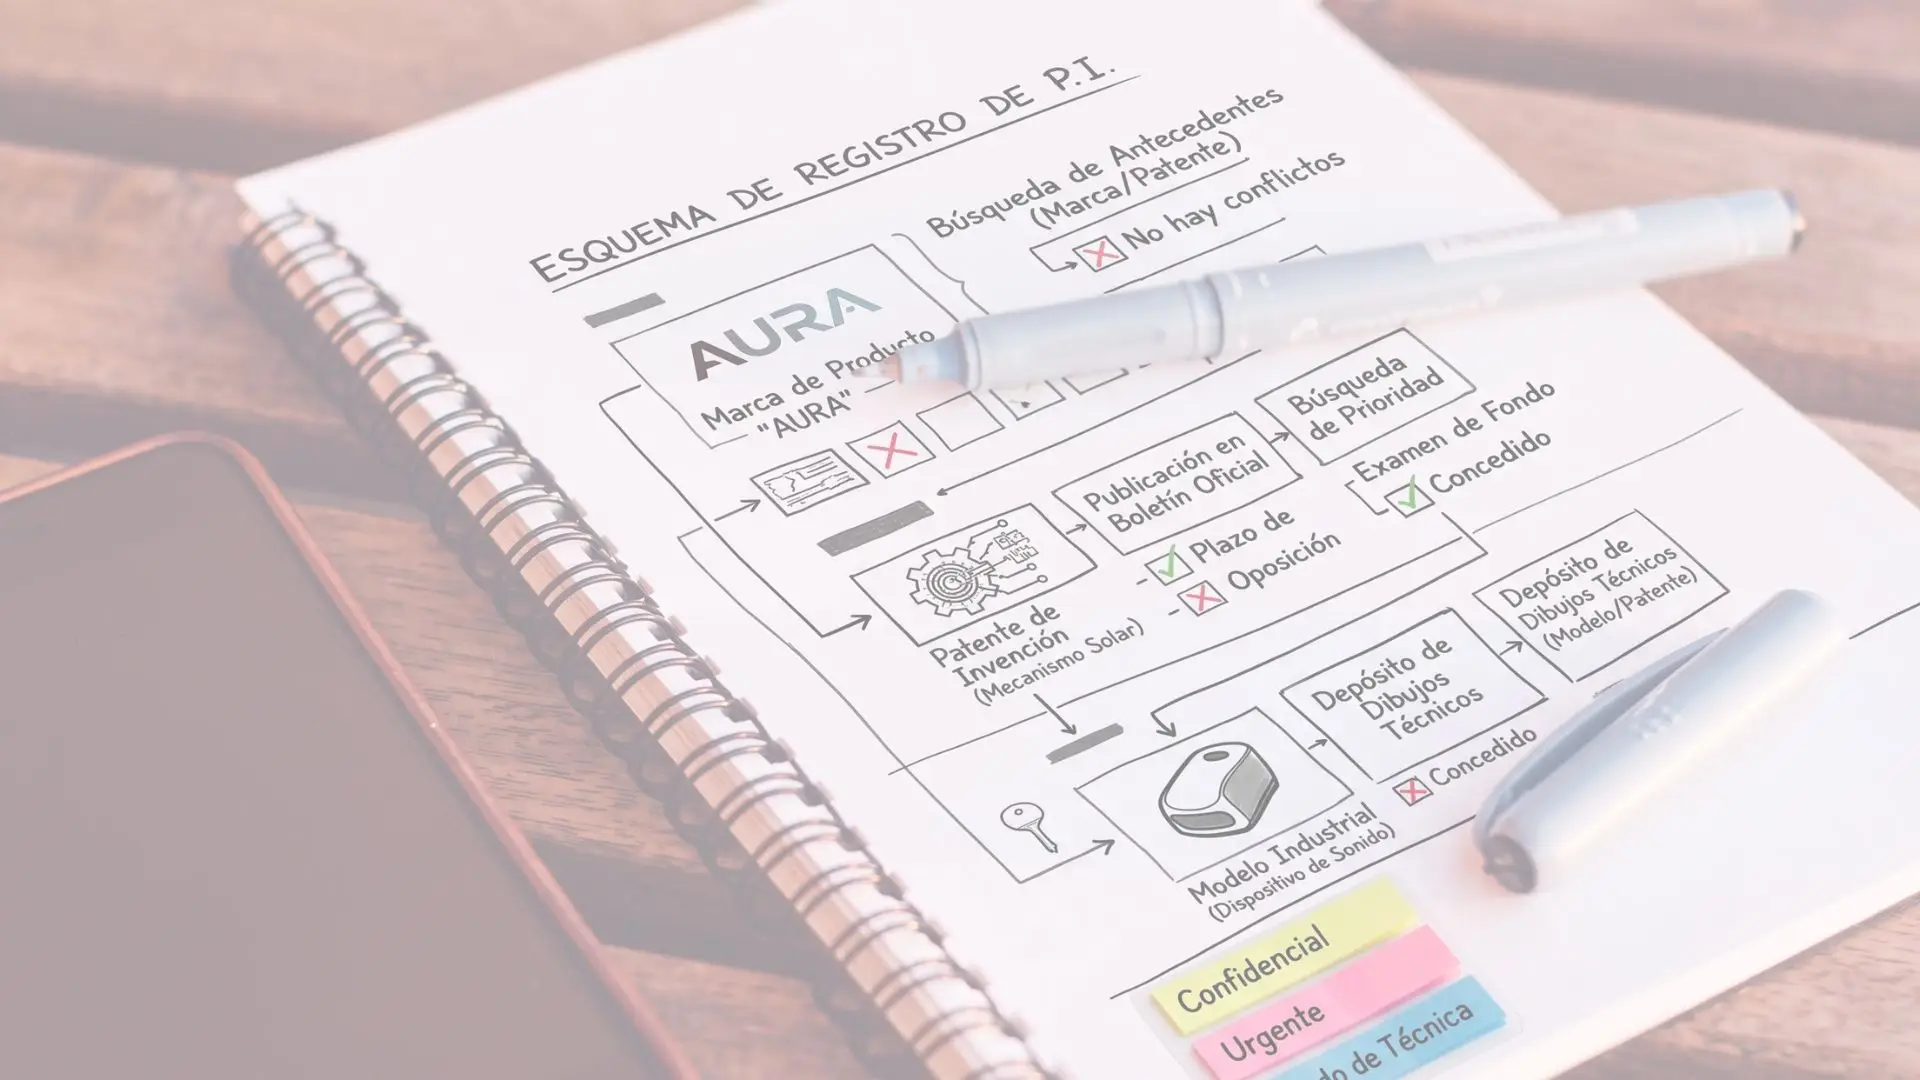 ESQUEMA DE REGISTRO DE P.I.
Búsqueda de Antecedentes
(Marca/Patente)
No hay conflictos
AURA
Marca de Producto
"AURA"
Búsqueda
de Prioridad
Publicación en
Boletín Oficial
Examen de Fondo
Concedido
Plazo de
Oposición
Patente de
Invención
(Mecanismo Solar)
Depósito de
Dibujos Técnicos
(Modelo/Patente)
Depósito de
Dibujos
Técnicos
Concedido
Modelo Industrial
(Dispositivo de Sonido)
Confidencial
Urgente
de Técnica